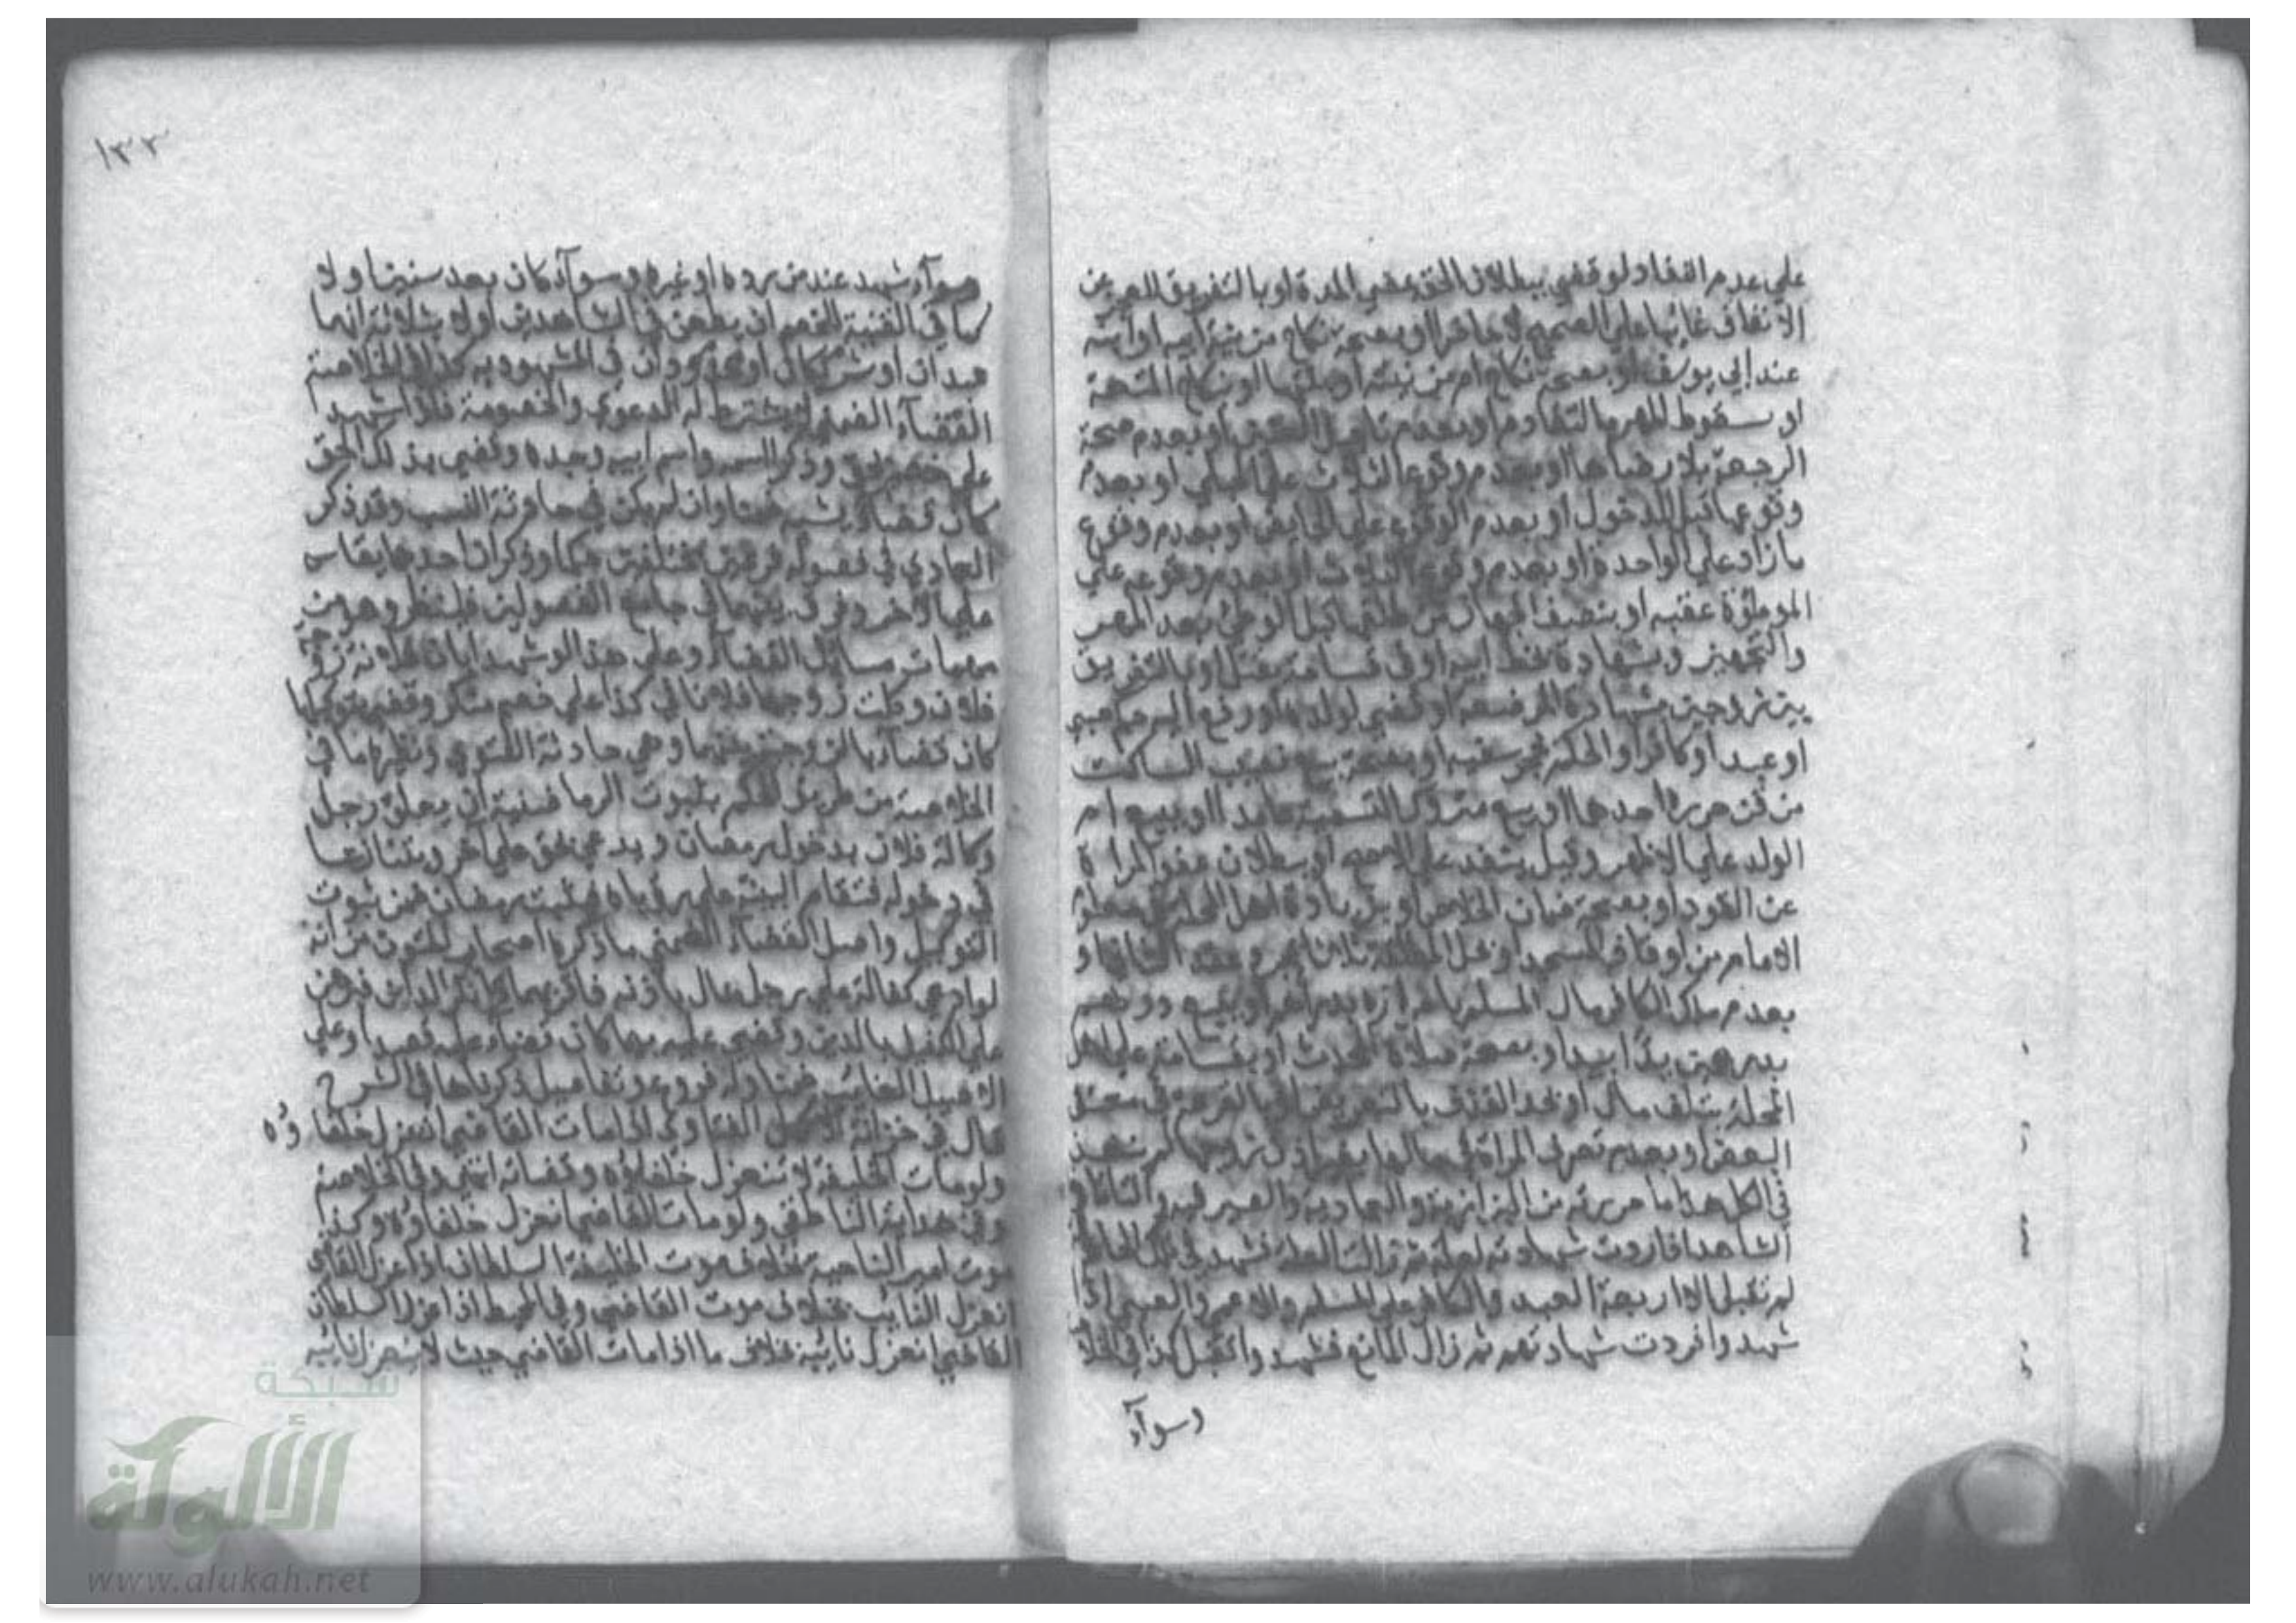 على عدم النفاذ لو قضى ببطلان الحق بمضي المدة او بالتفريق للعجز عن
الانفاق غائبا على الصحيح لا حاضرا او بصحة نكاح مزنية ابيه او ابنه
عند ابي يوسف او بصحة نكاح ام مزنيته او بنتها او نكاح المتعة
او سقوط المهر بالتقادم او بعدم تاجيل العنين او بعدم صحة
الرجعة بلا رضاها او بعدم وقوع الثلاث على الحبلى او بعدم
وقوعها قبل الدخول او بعدم الوقوع على الحايض او بعدم وقوع
ما زاد على الواحدة او بعدم وقوع الثلاث او بعدم وقوعه على
الموطؤة عقبه او بنصف الجهاز من طلقها قبل الوطئ بعد المهر
والتجهيز وبشهادة بخط ابيه او في قسامة بقتل او بالتفريق
بين زوجين بشهادة المرضعة او قضى لولده او رفع اليه حكم صبي
او عبد او كافر او الحكم بحجر سفيه او بصحة بيع نصيب الساكت
من قن حرره احدهما او بيع متروك التسمية عامدا او ببيع ام
الولد على الاظهر وقيل ينفذ على الاصح او ببطلان عفو المراة
عن القود او بصحة ضمان الخلاص او بزيادة اهل المحلة في معلوم
الامام من اوقاف المسجد او بحل المطلقة ثلاثا بمجرد عقد الثاني او
بعدم ملك الكافر مال المسلم باحرازه بدارهم او ببيع درهم
بدرهمين يدا بيد او بصحة صلاة المحدث او بقسامة على اهل
المحلة بتلف مال او بحد القذف بالتعريض او بالقرعة في معتق
البعض او بعدم تصرف المراة في مالها بغير اذن زوجها لم ينفذ
في الكل هذا ما حررته من البزازية والعمادية والصيرفية والتاتار
الشاهد اذا ردت شهادته لعلة ثم زالت العلة فشهد في تلك الحادثة
لم تقبل الا اربعة العبد والكافر على المسلم والاعمى والصبي اذا
شهدوا فردت شهادتهم ثم زال المانع فشهدوا تقبل كذا في الخلا
وسوآء
وسوآء شهد عند من رده او غيره وسوآء كان بعد سنين او لا
كما في القنية للخصم ان يطعن في الشاهدين اولا بثلاثة انهما
عبدان او شريكان او محدودان في المشهود به كذا في الخلاصة
القضآء الضمني لا يشترط له الدعوى والخصومة فلو شهد
على خصم بحق وذكر اسمه واسم ابيه وجده وقضى بذلك الحق
كان قضاء بنسبه ضمنا وان لم يكن في حادثة النسب وقد ذكر
العمادي في فصوله فرعين مختلفين حكما وذكر ان احدهما يقاس
على الاخر وفرق بينهما في جامع الفصولين فلينظر وهو من
مهمات مسائل القضآء وعلى هذا لو شهدا بان فلانة زوجة
فلان وكلت زوجها فلانا في كذا على خصم منكر وقضى بتوكيلها
كان قضآء بالزوجية بينهما وهي حادثة الفتوى ونظيرها ما في
الخلاصة من طريق الحكم بثبوت الرمضانية ان يعلق رجل
وكالة فلان بدخول رمضان ويدعي بحق على اخر ويتنازعا
في دخوله فتقام البينة على رؤياه فيثبت رمضان في ضمن ثبوت
التوكيل واصل القضآء الضمني ما ذكره اصحاب المتون من انه
لو ادعى كفالة على رجل بمال باذنه فاقر بها وانكر الدين فبرهن
على الكفيل بالدين وقضى عليه بها كان قضاء عليه قصدا وعلى
الاصيل الغائب ضمنا وله فروع وتفاصيل ذكرناها في الشرح
قال في خزانة الاكمل الفتاوى اذا مات القاضي انعزل خلفاؤه
ولو مات الخليفة لا تنعزل خلفاؤه وقضاته انتهى وفي الخلاصة
وفي هداية الناطفي ولو مات القاضي انعزل خلفاؤه وكذا
موت امير الناحية بخلاف موت الخليفة السلطان اذا عزل القاضي
انعزل النايب بخلاف موت القاضي وفي المحيط اذا عزل السلطان
القاضي انعزل نائبه بخلاف ما اذا مات القاضي حيث لا ينعزل نائبه
١٣٣
شبكة
الألوكة
www.alukah.net